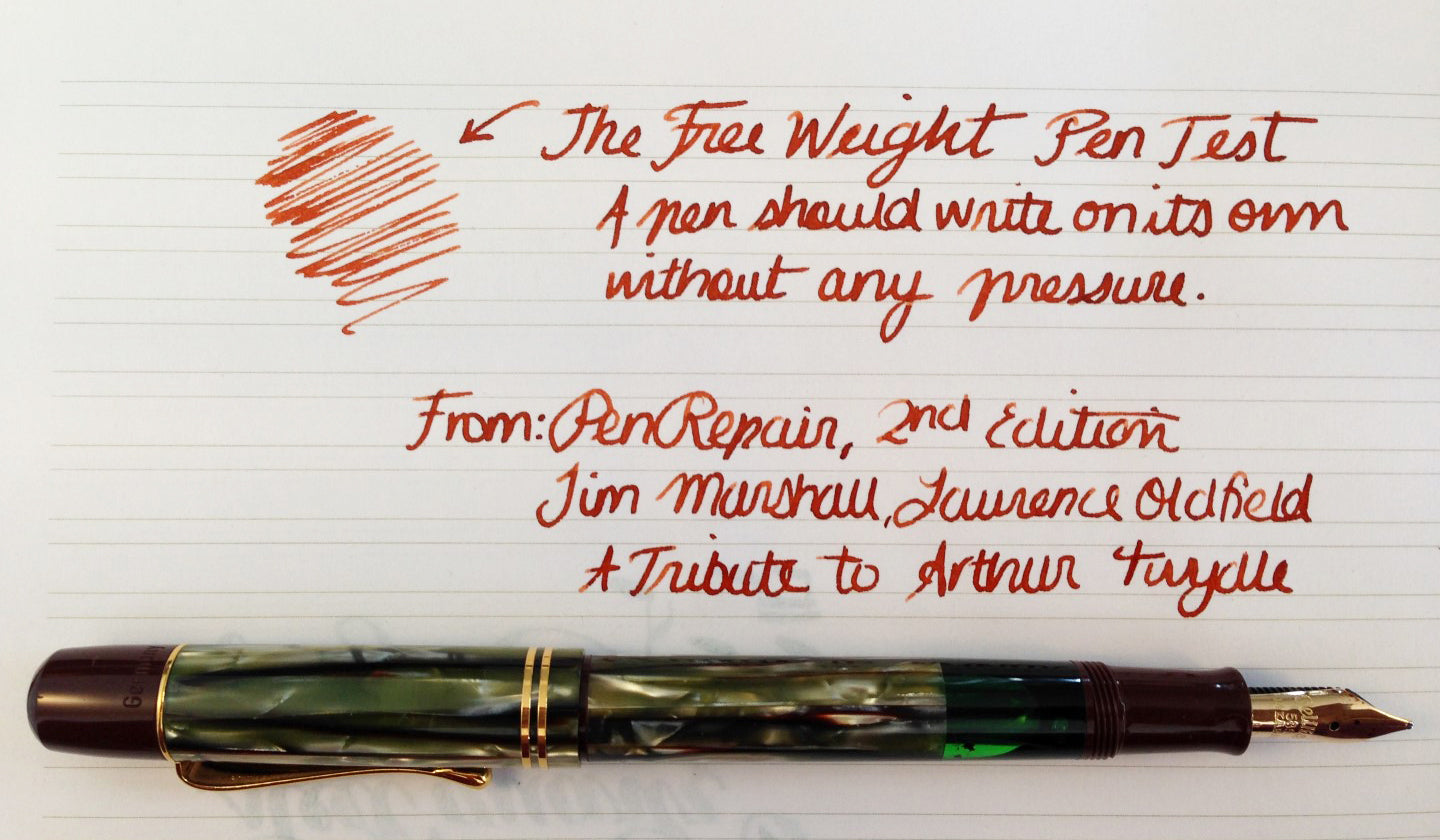 The Free Weight Pen Test
A pen should write on its own
without any pressure.
From: Pen Repair, 2nd Edition
Jim Marshall, Laurence Oldfield
A Tribute to Arthur Twydle
Germany